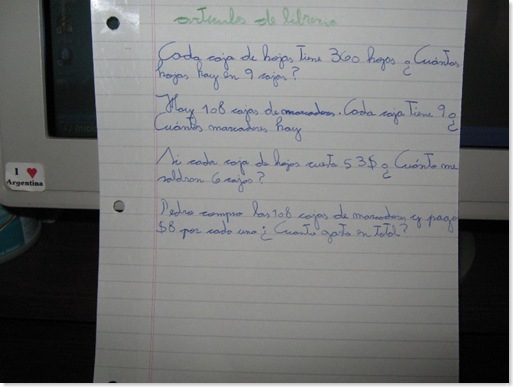 articulos de libreria
Cada caja de hojas tiene 360 hojas ¿Cuántas
hojas hay en 9 cajas?
Hay 108 cajas de marcadores. Cada caja tiene 9 ¿
Cuántos marcadores hay
Si cada caja de hojas cuesta 53$ ¿Cuánto me
saldran 6 cajas?
Pedro compro las 108 cajas de marcadores y pago
$8 por cada una ¿Cuanto gasta en total?
I ♥
Argentina